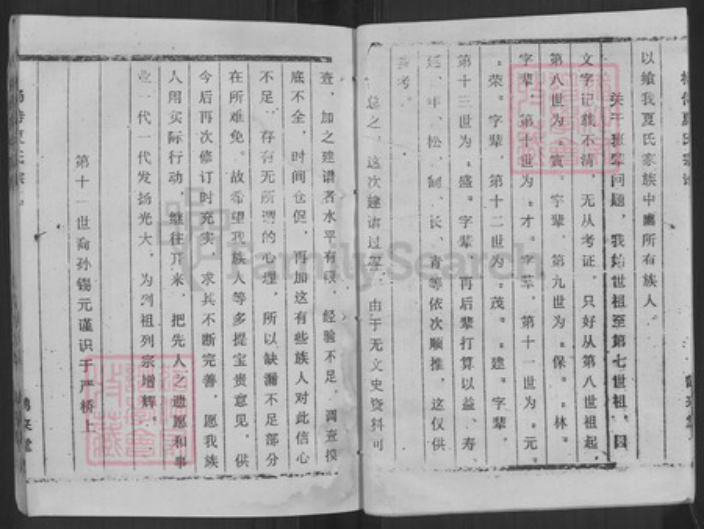 以飨我夏氏家族中鹰所有族人。
关于班辈问题，我始世祖至第七世祖，因
文字记载不清，无从考证，只好从第八世祖起，
第八世为“寅”字辈、第九世为“保”“林”
字辈，第十世为“才”字辈，第十一世为“元”
“荣”字辈，第十二世为“茂”“建”字辈，
第十三世为“盛”字辈，再后辈打算以益、寿、
延、年、松、制、长、青等依次顺推，这仅供
参考。
总之，这次建谱过程，由于无文史资料可
查，加之建谱者水平有限，经验不足，调查摸
底不全，时间仓促，再加这有些族人对此信心
不足，存有无所谓的心理，所以缺漏不足部分
在所难免。故希望我族人等多提宝贵意见，供
今后再次修订时充实，求其不断完善，愿我族
人用实际行动，继往开来，把先人之遗愿和事
业一代一代发扬光大，为列祖列宗增辉。
第十一世裔孙锡元谨识于严桥上
FamilySearch